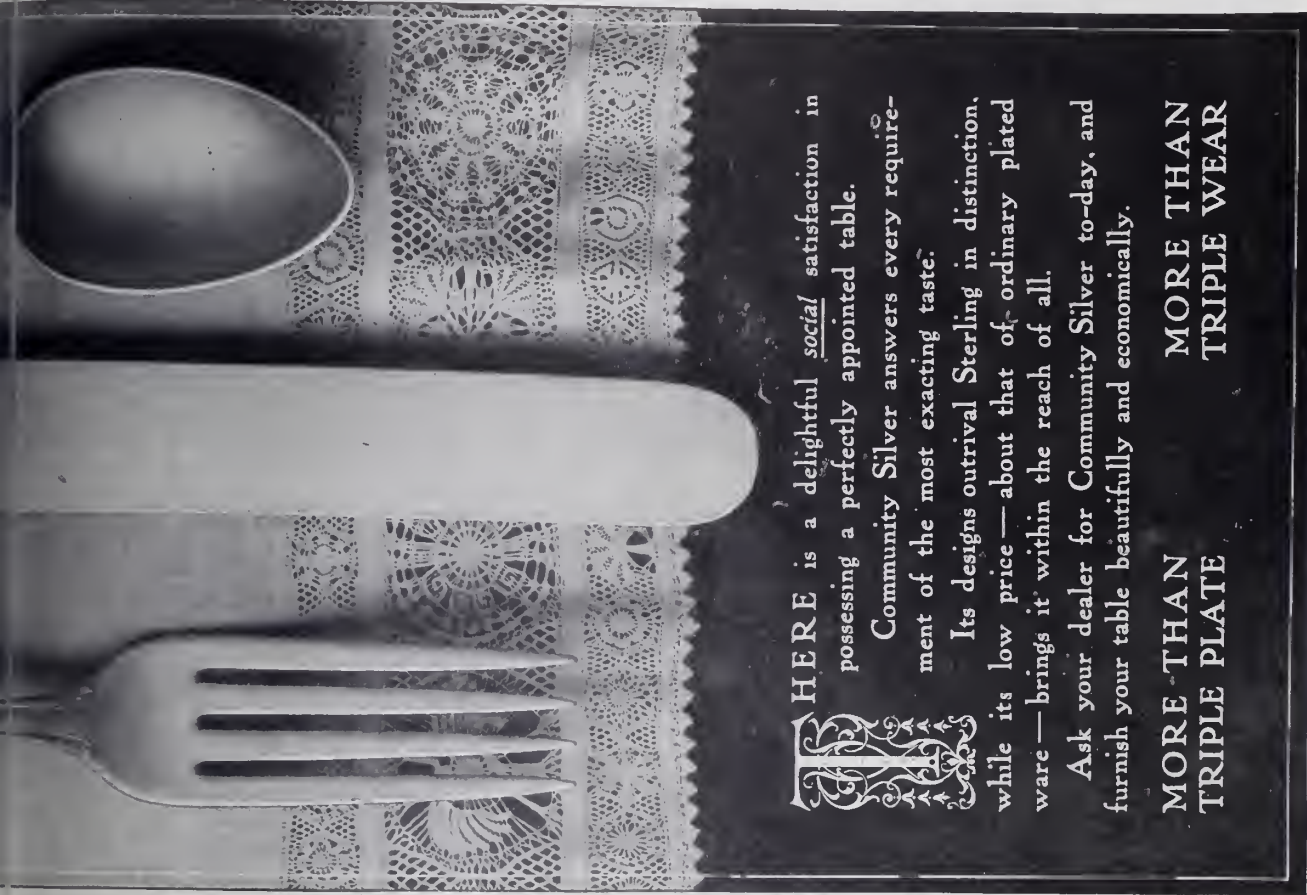 THERE is a delightful social satisfaction in
possessing a perfectly appointed table.
Community Silver answers every require-
ment of the most exacting taste.
Its designs outrival Sterling in distinction,
while its low price—about that of ordinary plated
ware—brings it within the reach of all.
Ask your dealer for Community Silver to-day, and
furnish your table beautifully and economically.
MORE THAN
TRIPLE PLATE
MORE THAN
TRIPLE WEAR